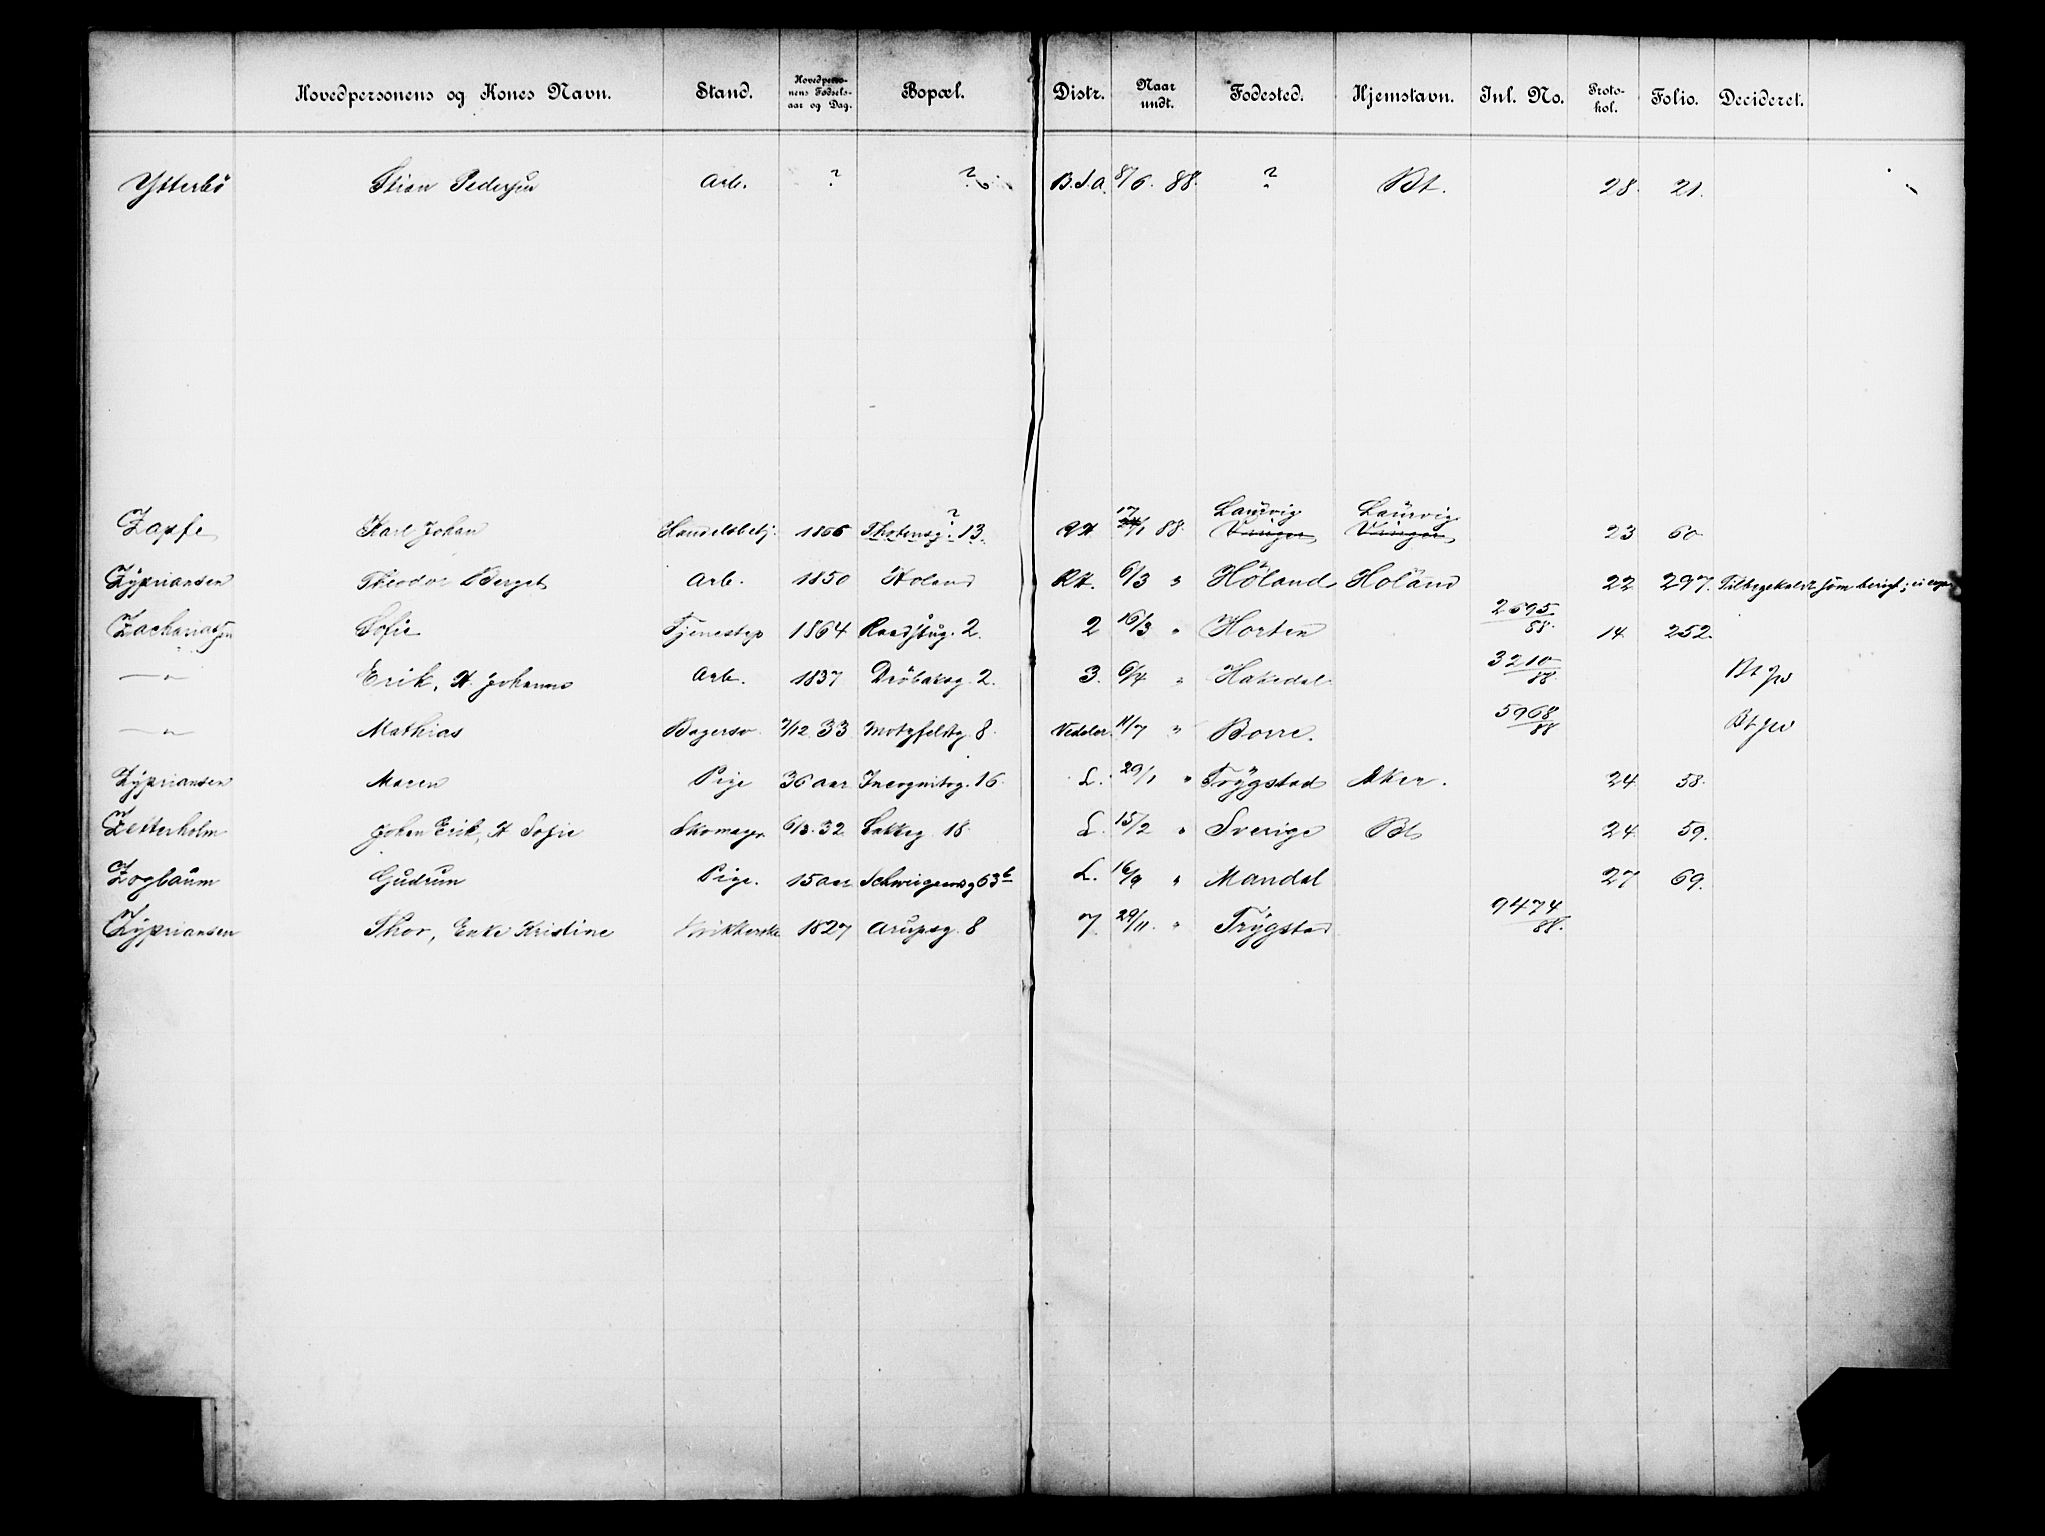 Hovedpersonens og Kones Navn. Stand. Hovedpersonens Fødselsaar og Dag. Bopæl. Distr. Naar undt. Fødested. Hjemstavn. Inl. No. Protokol. Folio. Decideret.
Ytterbö Stian Pedersen Arb. ? ? B.S.A. 8/6. 88. ? Bt. 28. 21.
Zapfe Karl Johan Handelsbetj. 1866 Thotensg. ? 13. 17/1 88. Laurvig Laurvig 23 60
Zypriansen Theodor Berget Arb. 1850 Höland Rt. 6/3 " Höland Höland 22 297. Tilbagekaldt som
Zachariasen Sofie Tjenestep 1864 Raadstug. 2. 2 16/3 " Horten 2695/88. 14. 252.
—"— Erik, H. Johanne Arb. 1837 Dröbaksg. 2. 3. 6/4 " Hakedal 3210/88. Bt
—"— Mathias Bagersv. 2/12 33 Motzfeldtg. 8. Vedeler. 11/7 " Borre. 5968/88 Bt
Zypriansen Maren Pige 36 aar Incognitog. 16. L. 20/1 " Trygstad Aker. 24. 58.
Zetterholm Johan Erik, H Sofie Skomager 6/3. 32 Bakkeg 18. L. 15/2 " Sverige Bt 24. 59.
Zogbaum Gudrun Pige. 15 aar Schweigaardsg 63b L. 16/9 " Mandal 27 69.
Zypriansen Thor, Enke Kristine 1827 Arupsg. 8 7. 29/11. " Trygstad 9474/88.